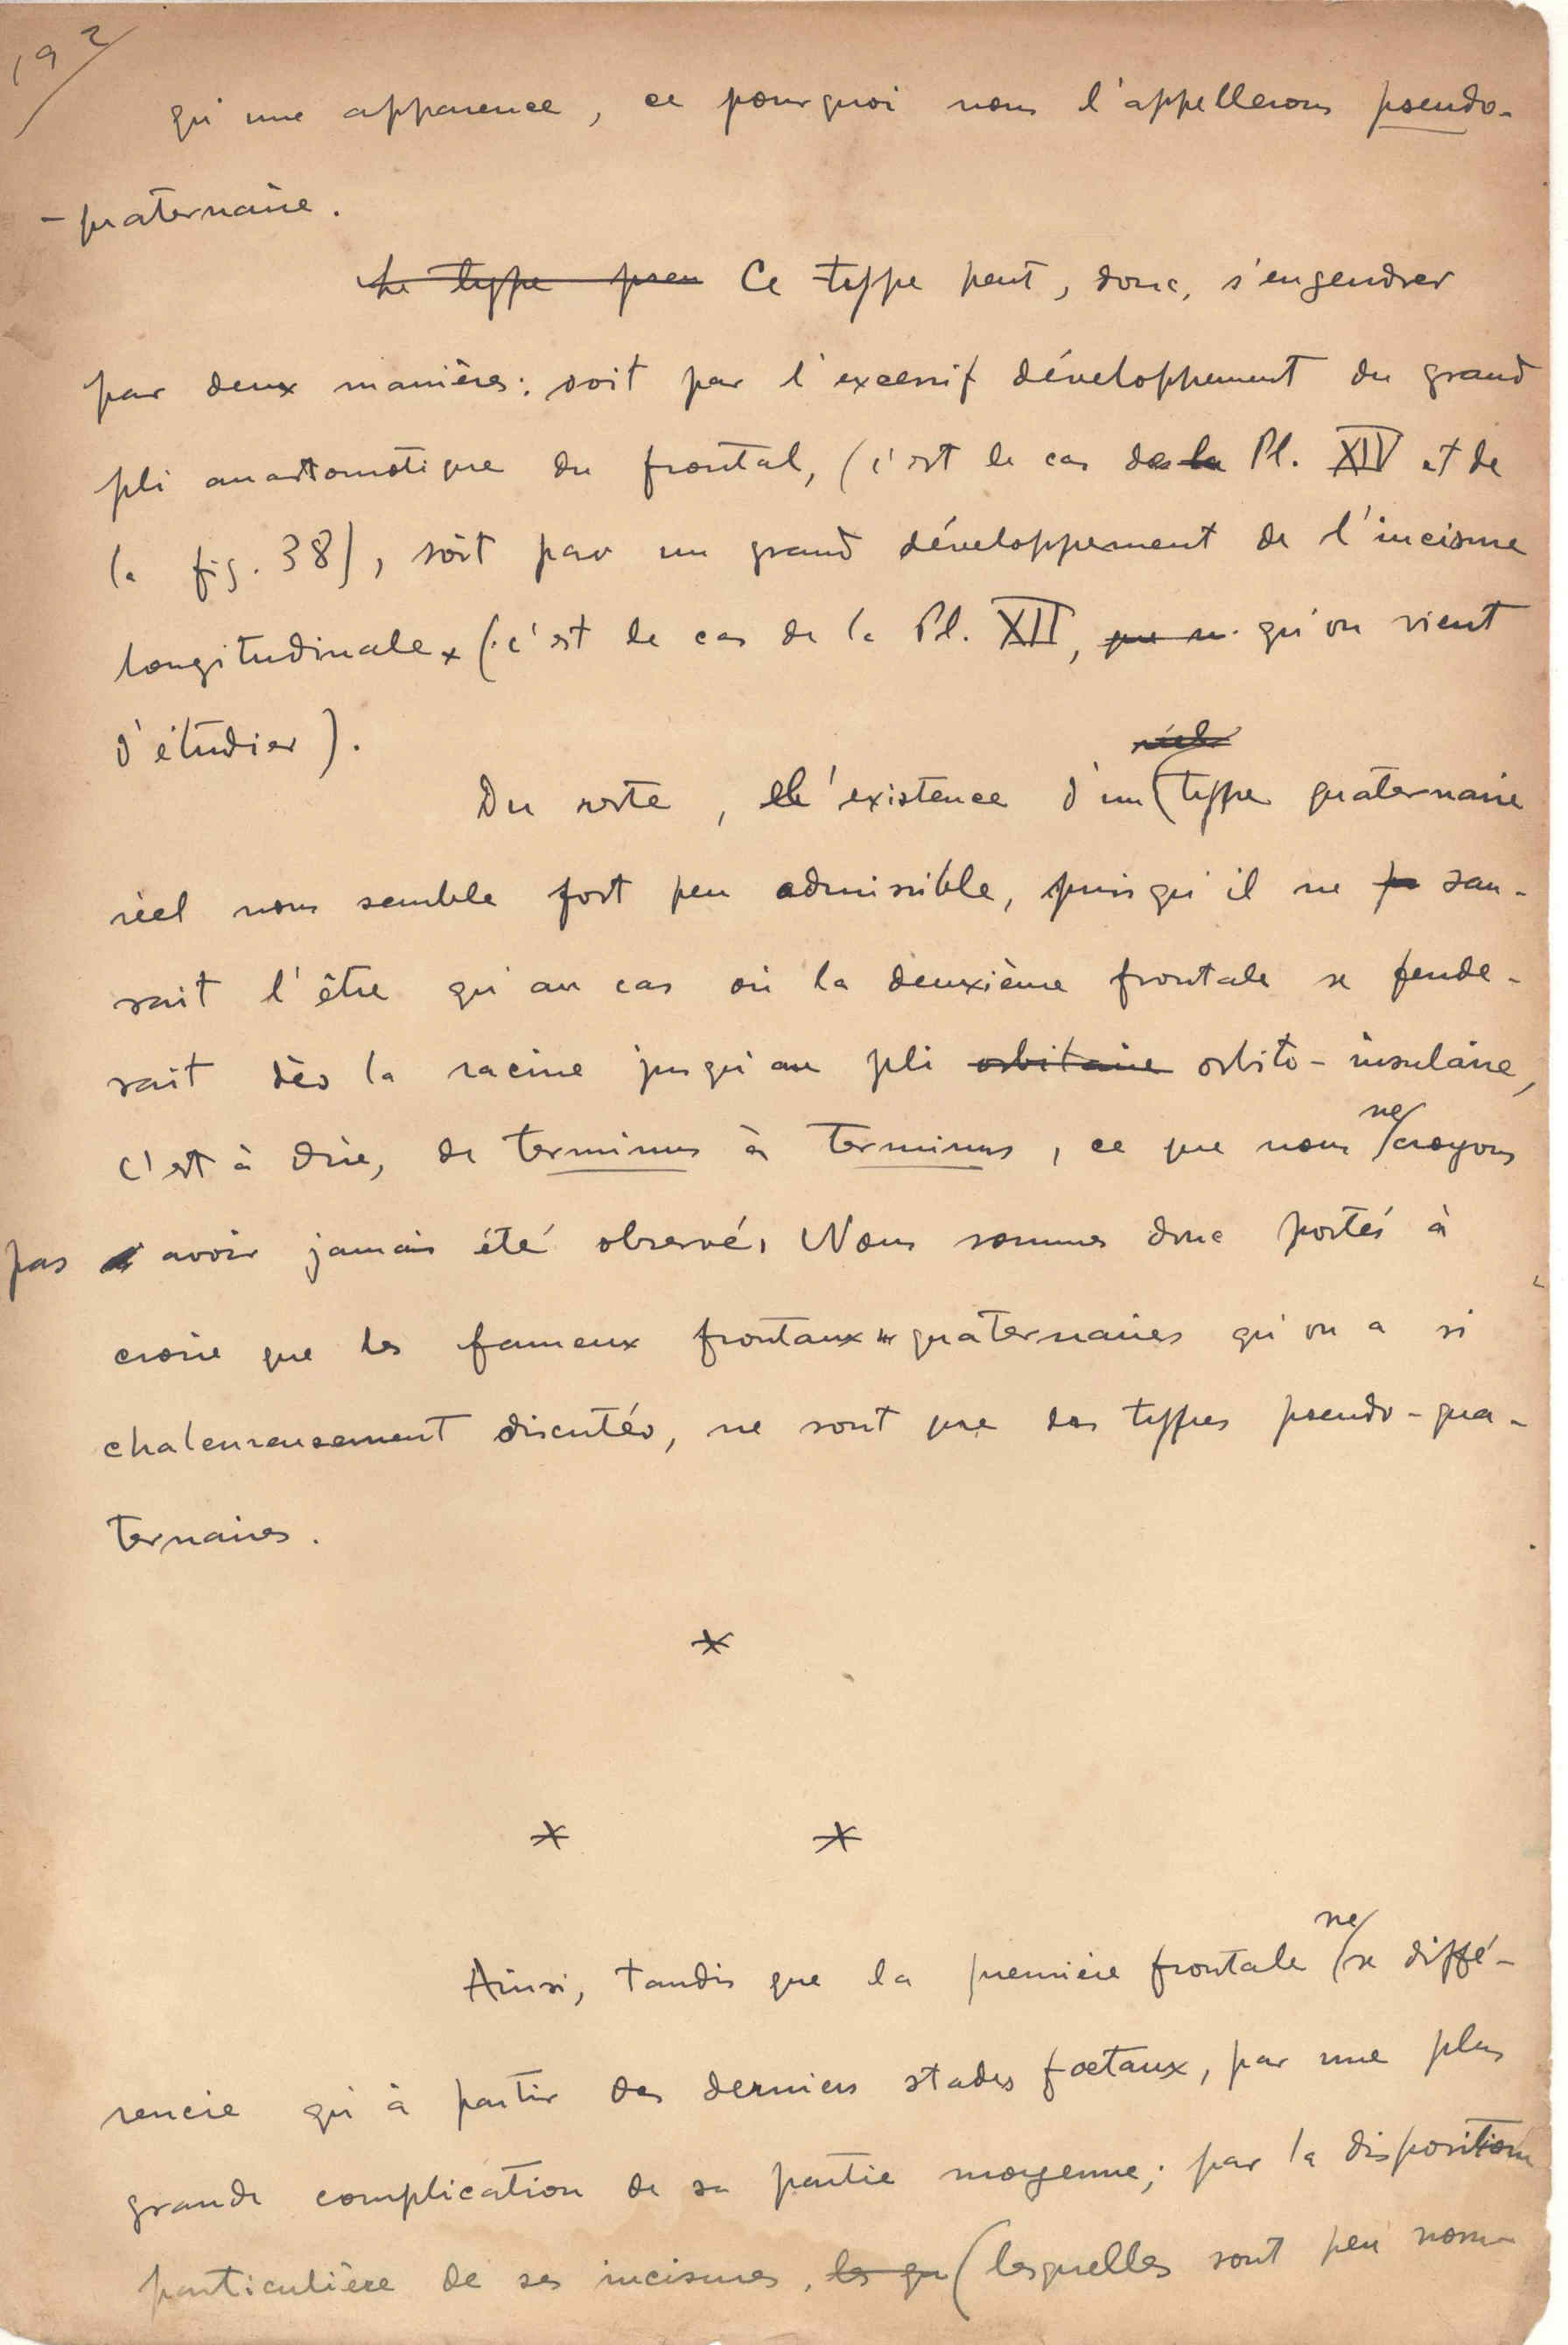 192
qu'une apparence, ce pourquoi nous l'appellerons pseudo-
-quaternaire.
Le type pseu Ce type peut, donc, s'engendrer
par deux manières: soit par l'excessif développement du grand
pli anastomotique du frontal, (c'est le cas de la Pl. XIV et de
la fig. 38), soit par un grand développement de l'incisure
longitudinale, (c'est le cas de la Pl. XII, qu'on vient
d'étudier).
Du reste, l'existence d'un type quaternaire
réel nous semble fort peu admissible, puisqu'il ne sau-
rait l'être qu'au cas où la deuxième frontale se fende-
rait dès la racine jusqu'au pli orbitaire orbito-insulaire,
c'est à dire, de terminus à terminus, ce que nous ne croyons
pas avoir jamais été observé. Nous sommes donc portés à
croire que les fameux frontaux quaternaires qu'on a si
chaleureusement discutés, ne sont que des types pseudo-qua-
ternaires.
*
* *
Ainsi, tandis que la première frontale ne se diffé-
rencie qu'à partir des derniers stades fœtaux, par une plus
grande complication de sa partie moyenne; par la disposition
particulière de ses incisures, les qu (lesquelles sont peu nom-